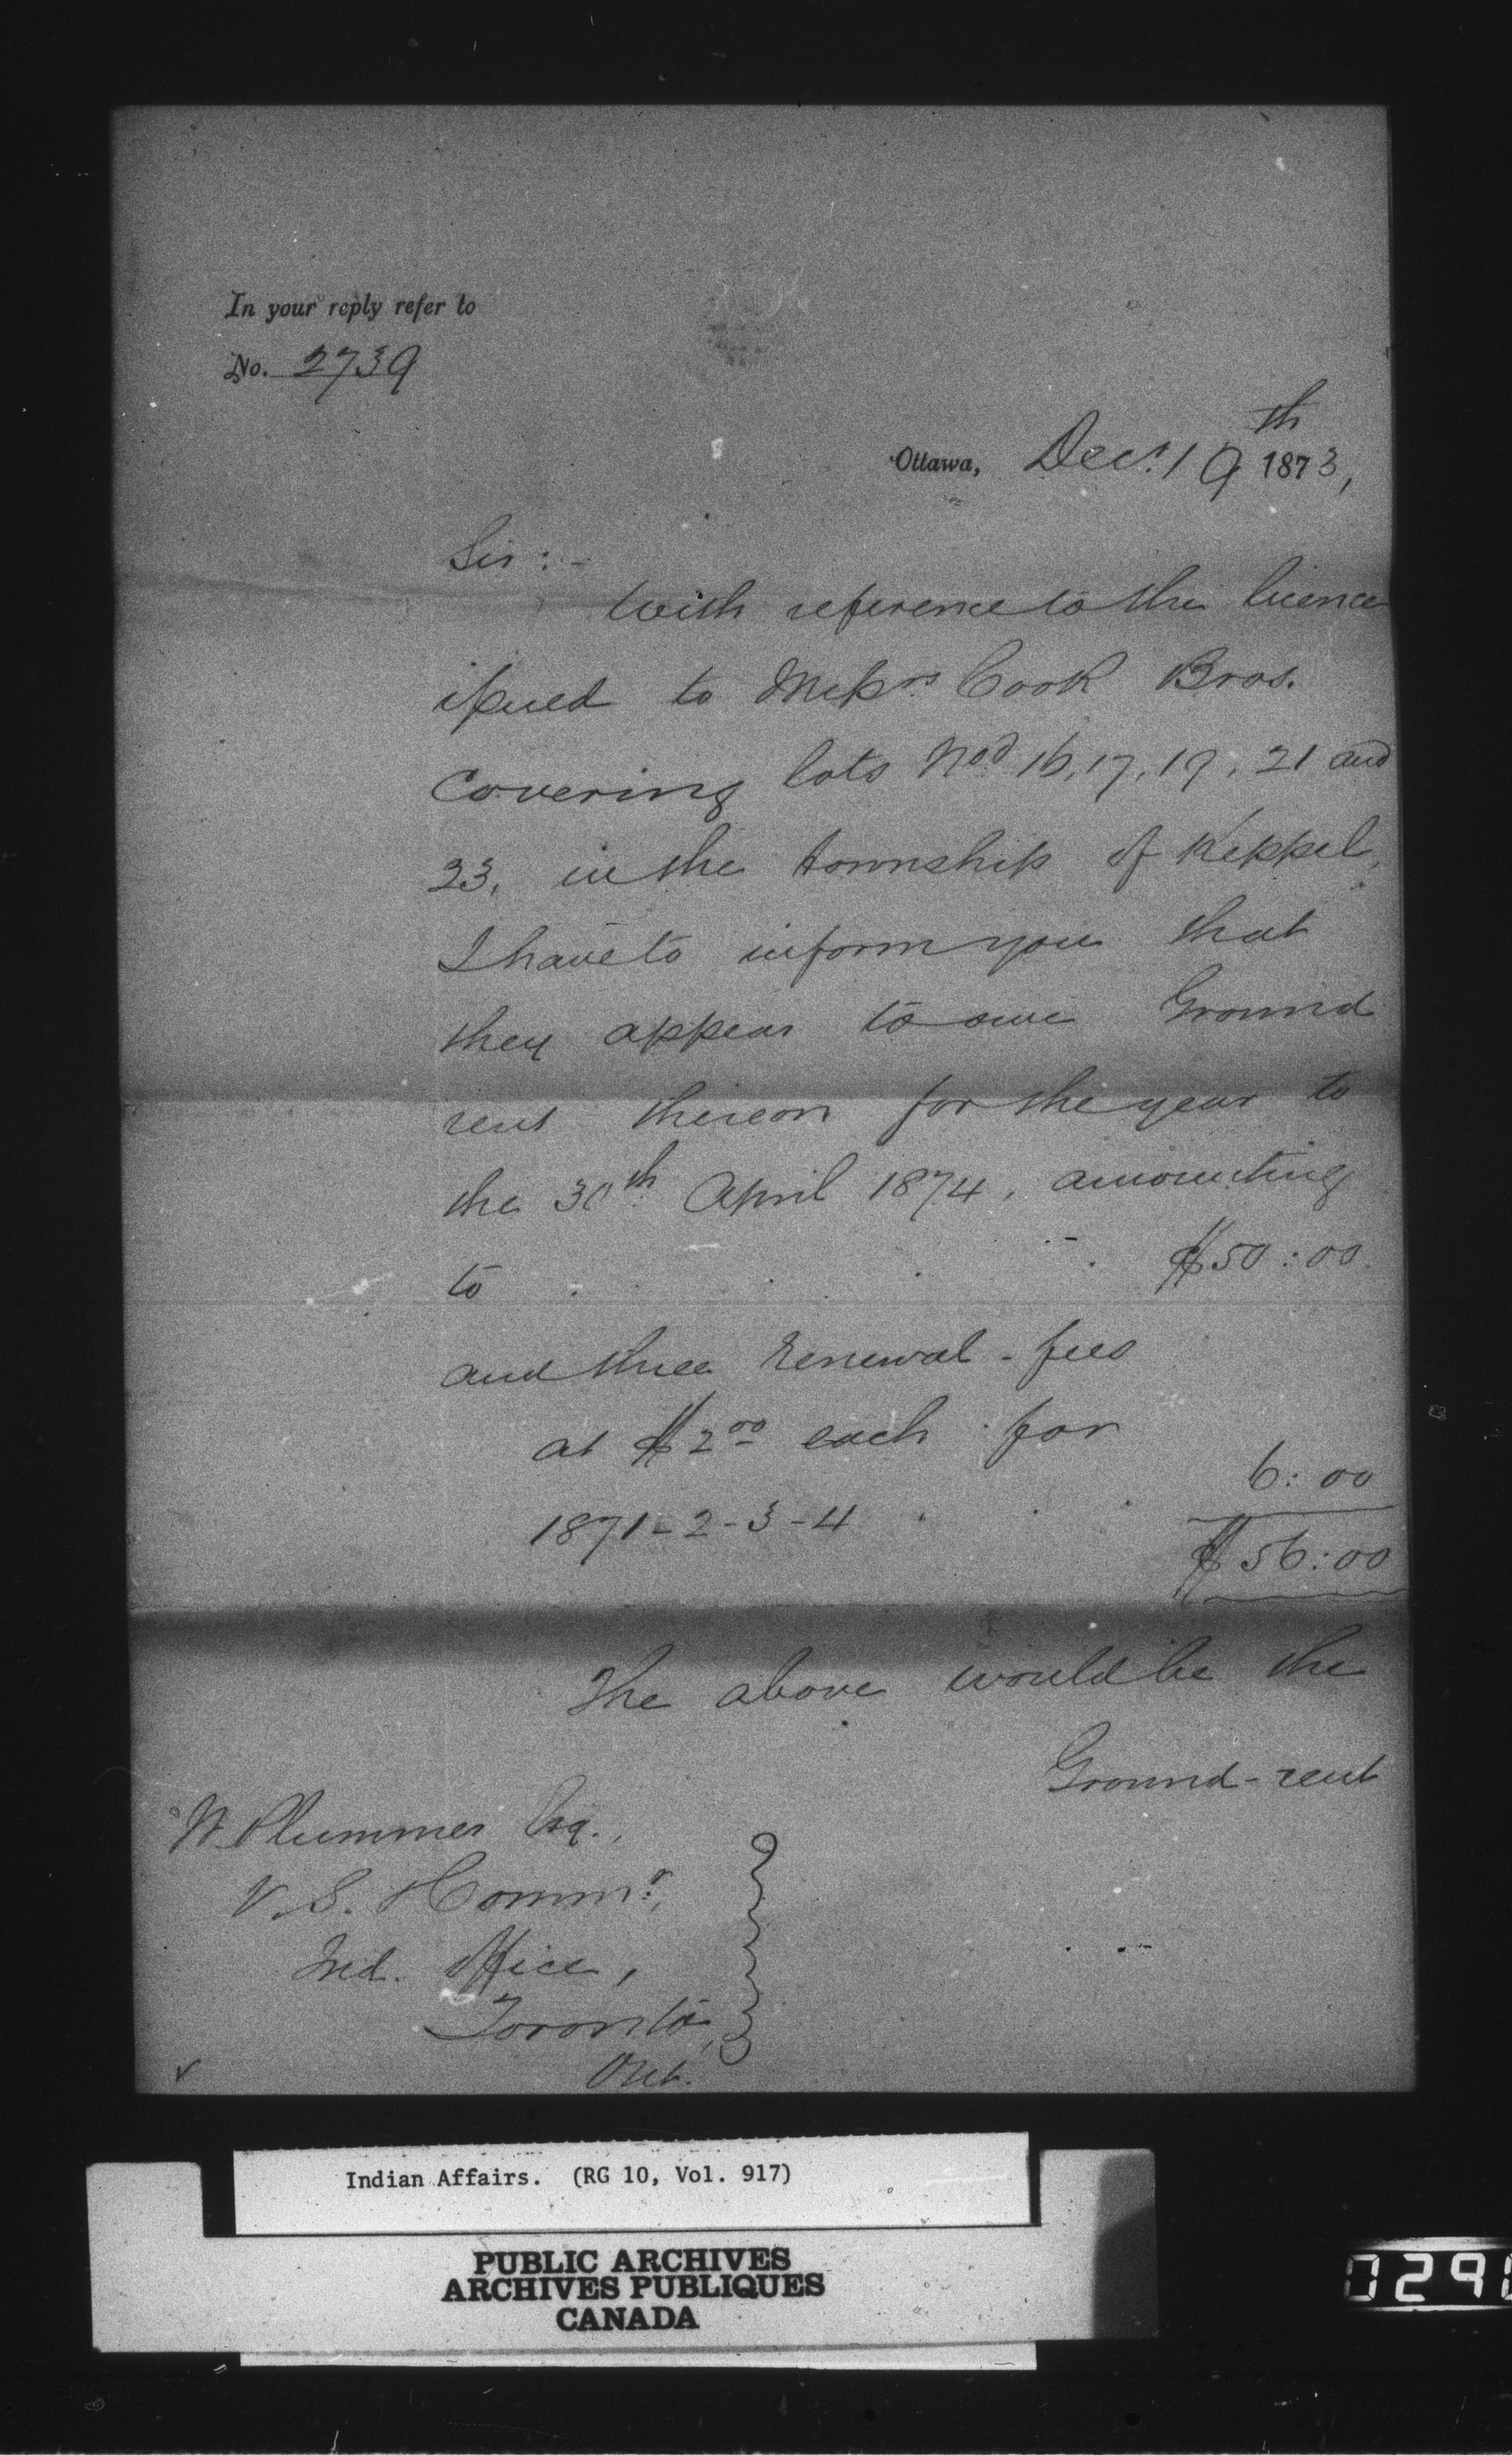 In your reply refer to
No. 2739
Ottawa, Decr. 19th 1873,
Sir:-
With reference to the licence
issued to Messrs Cook Bros.
covering lots Nos 16, 17, 19, 21 and
23, in the township of Keppel,
I have to inform you that
they appear to owe Ground
rent thereon for the year to
the 30th April 1874, amounting
to . . . . $50:00
and three renewal-fees
at $2.00 each for
1871-2-3-4 . . . 6:00
$56:00
The above would be the
Ground-rent
W. Plummer Esq.,
V. S. Commr.,
Ind. Office,
Toronto,
Ont.
Indian Affairs. (RG 10, Vol. 917)
PUBLIC ARCHIVES
ARCHIVES PUBLIQUES
CANADA
029